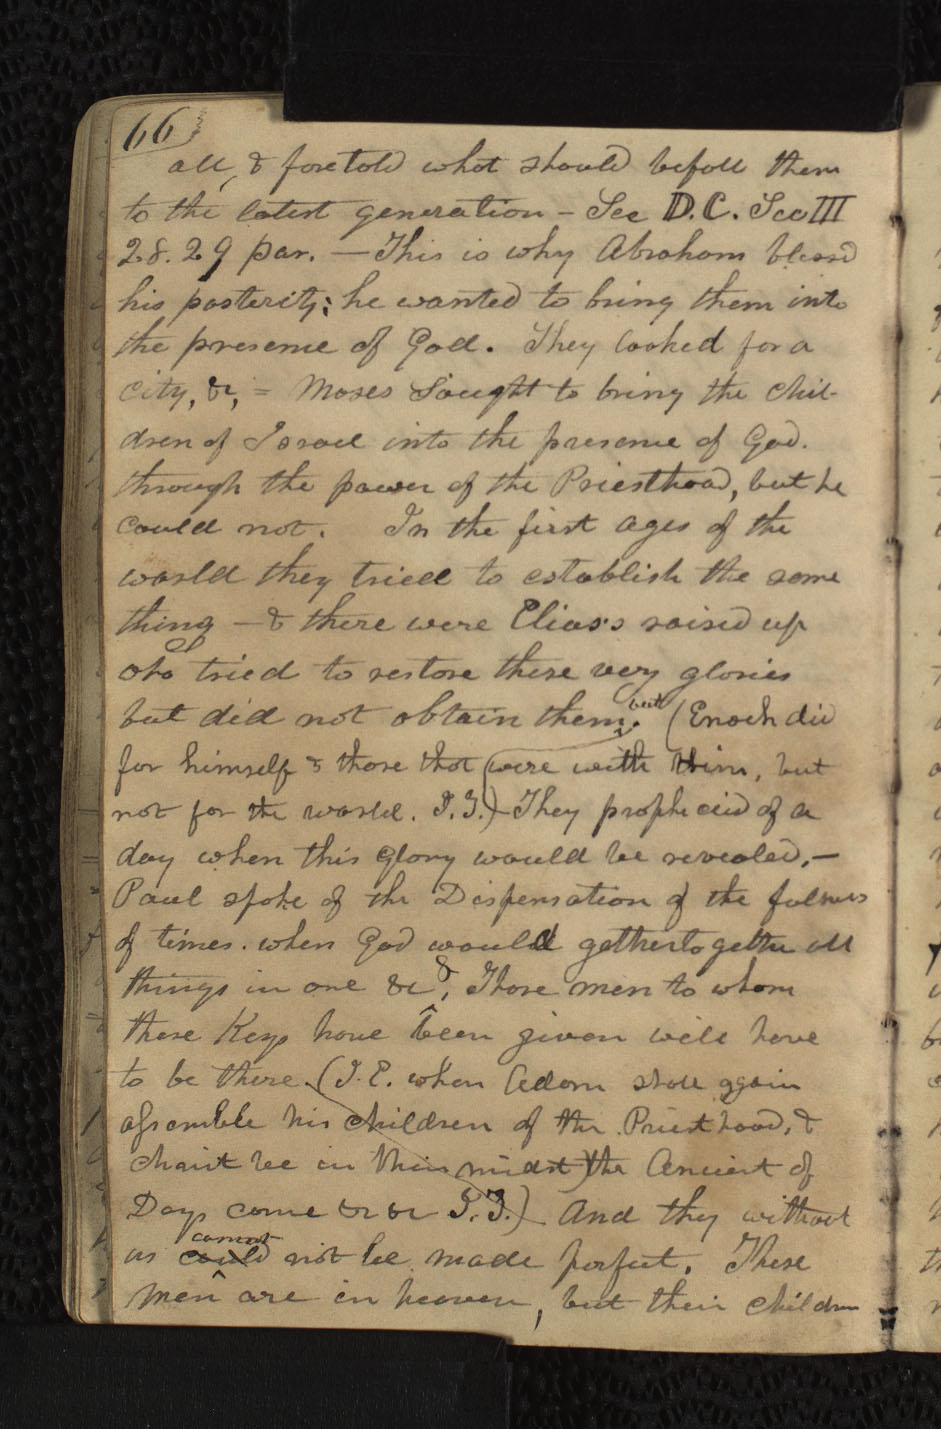 66
all, & foretold what should befall them
to the latest generation – See D.C. Sec III
28. 29 par. — This is why Abraham blessed
his posterity: he wanted to bring them into
the presence of God. They looked for a
city, &c, = Moses Sought to bring the chil-
dren of Israel into the presence of God.
through the power of the Priesthood, but he
could not. In the first ages of the
world they tried to establish the same
thing – & there were Elias's raised up
who tried to restore these very glories
but did not obtain them. but (Enoch did
for himself & those that were with Him, but
not for the world. J.T.) They prophecied of a
day when this Glory would be revealed. –
Paul spoke of the Dispensation of the fulness
of times. when God would gather together all
things in one &c &, Those men to whom
these Keys have been given will have
to be there. (I.E. when Adam shall again
assemble his children of the Priesthood, &
Christ be in their midst) the Ancient of
Days come &c &c J.T.) And they without
us cannot could not be made perfect. These
men are in heaven, but their children